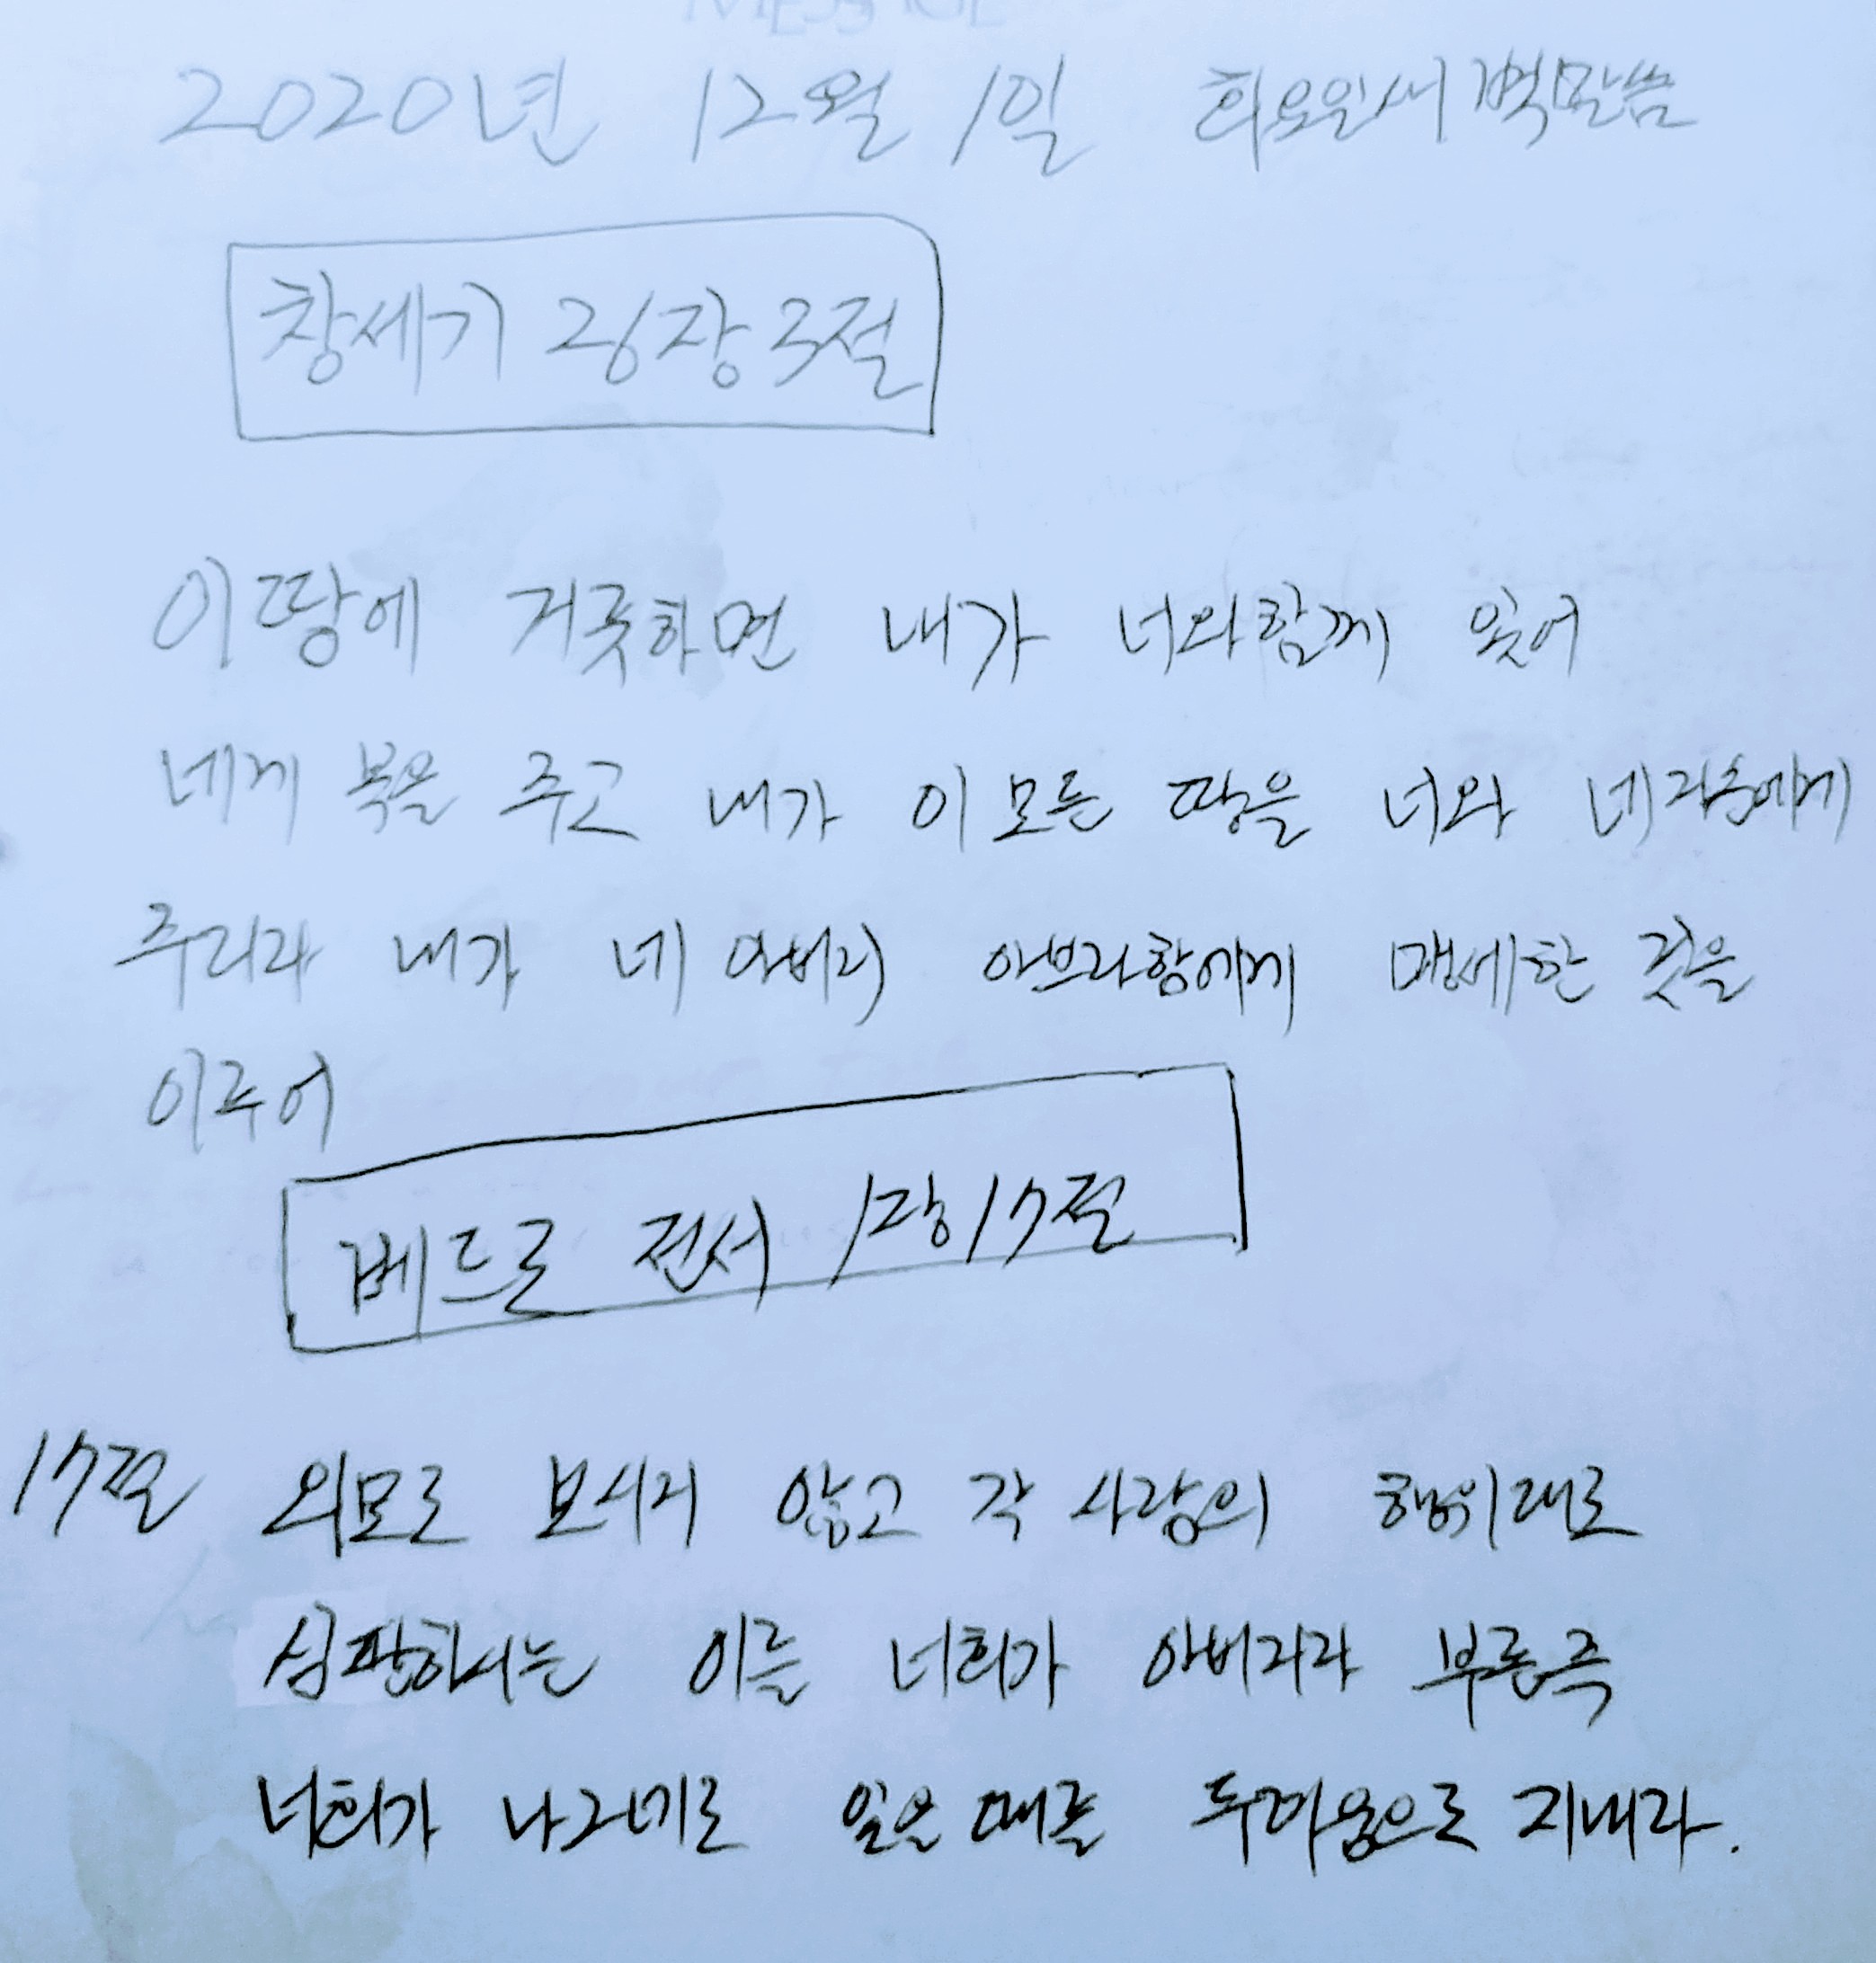 MESSAGE
2020년 12월 1일 화요일새벽말씀
창세기 26장 3절
이땅에 거류하면 내가 너와함께 있어
네게 복을 주고 내가 이 모든 땅을 너와 네자손에게
주리라 내가 네 아버지 아브라함에게 맹세한 것을
이루어
베드로 전서 1장 17절
17절 외모로 보시지 않고 각 사람의 행위대로
심판하시는 이를 너희가 아버지라 부른즉
너희가 나그네로 있을 때를 두려움으로 지내라.